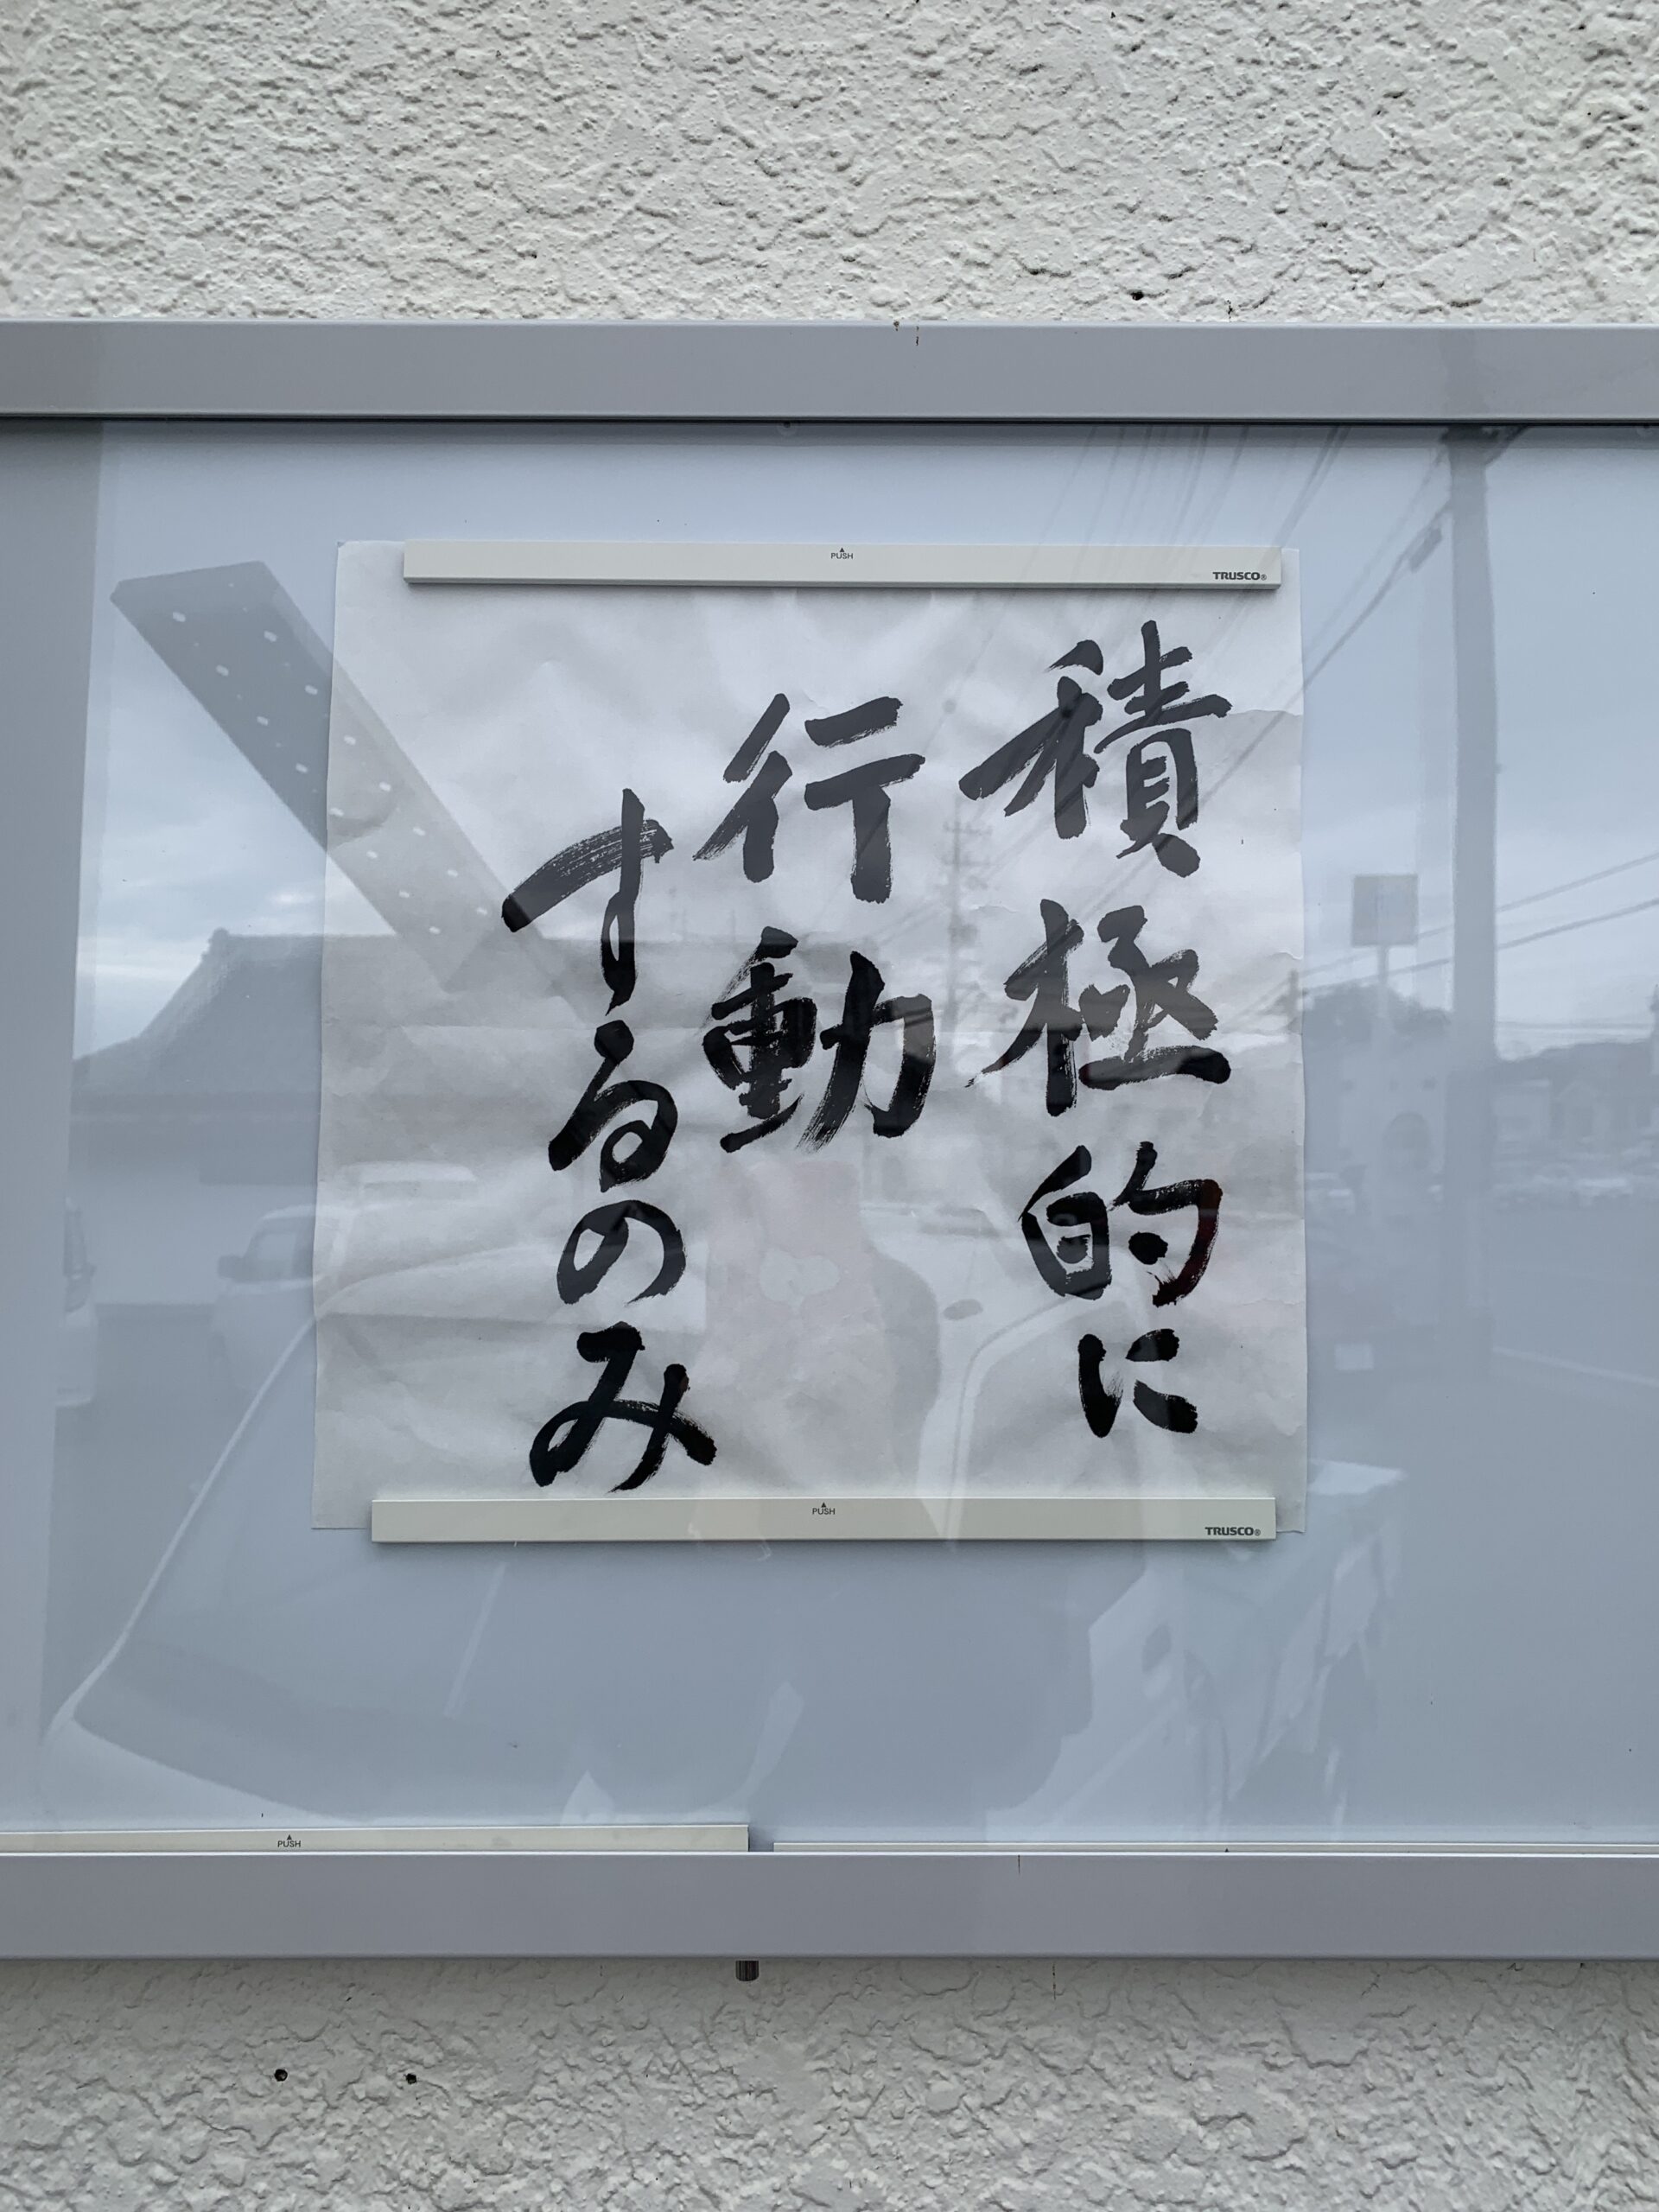 PUSH
TRUSCO®
積極的に
行動
するのみ
PUSH
TRUSCO®
PUSH